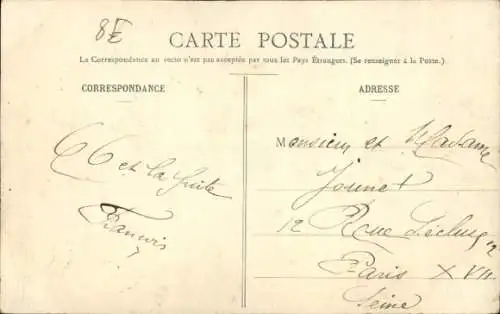 8E
CARTE POSTALE
La Correspondance au recto n'est pas acceptée par tous les Pays Étrangers. (Se renseigner à la Poste.)
CORRESPONDANCE
ADRESSE
et la suite
Francis
Monsieur et Madame
Jounet
12 Rue
Paris XVII
Seine